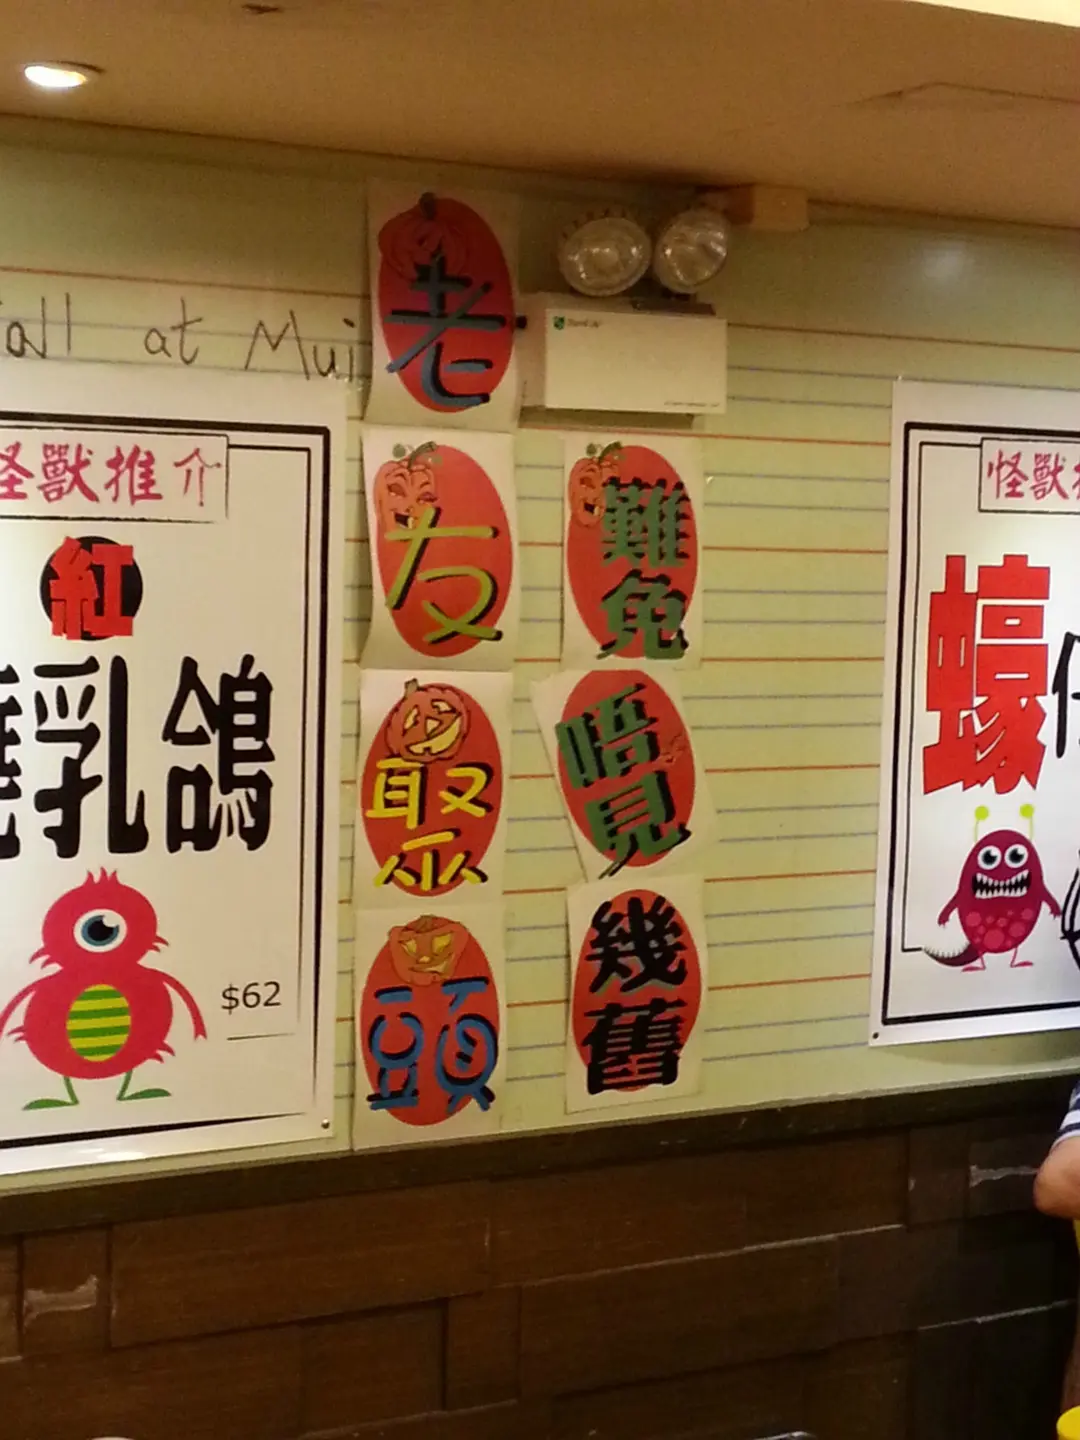 all at Mui
怪獸推介
紅
燒乳鴿
$62
老
友
聚
頭
難免
唔見
幾舊
怪獸推
蠔仔